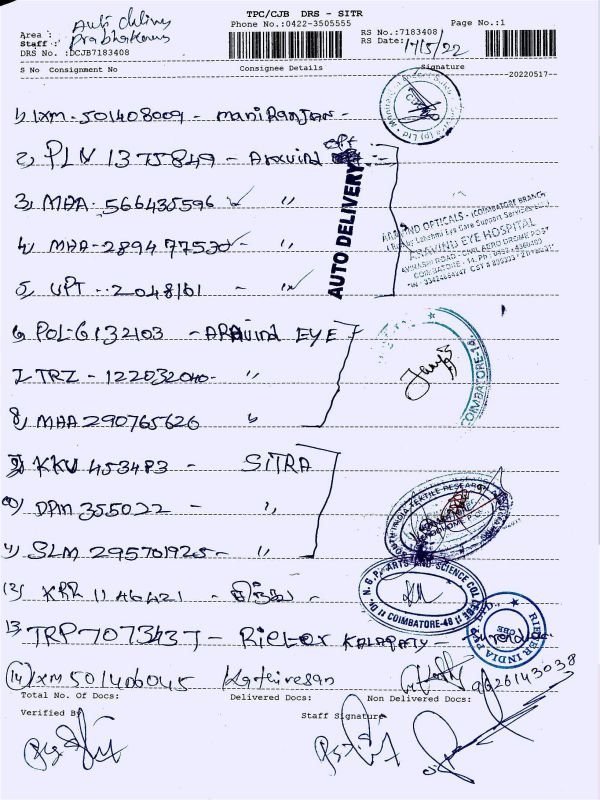 TPC/CJB DRS - SITR
Phone No.:0422-3505555
Page No.:1
Area :
Staff : Prabhakaran
DRS No. :DCJB7183408
RS No.:7183408
RS Date: 17/5/22
S No Consignment No Consignee Details Signature
20220517
1) IXM-501408009 - maniRanjan -
2) PLN 1375849 - Aravind OPt
3) MAA-566435596 ✓ "
4) MAA-289477530 ✓ "
5) UPT 2048161 - "
AUTO DELIVERY
ARAVIND OPTICALS - (COIMBATORE BRANCH
ARAVIND EYE HOSPITAL
AVINASHI ROAD - CIVIL AERO DROME POST
6) POL-6132103 - ARAvind EYE
7) TRZ - 122032040 - "
8) MAA 290765626 "
COIMBATORE-14.
9) KKV 453483 - SITRA
10) DPM 355022 - "
11) SLM 295701925 - "
SOUTH INDIA TEXTILE RESEARCH
12) KRR 1146421 -
Dr. N. G. P. ARTS AND SCIENCE COLLEGE
COIMBATORE-48
13 TRP 7073437 - Rieter KALAPATY -
RIETER INDIA PVT. LTD.
CBE
14) IXM 501406045 Kateiresan
9626143038
Total No. Of Docs: Delivered Docs: Non Delivered Docs:
Verified By Staff Signature